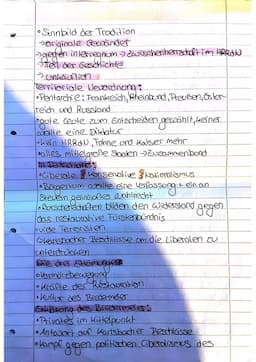 • Sinnbild der Tradition
→ originale Gewänder
→ gegen interregnum → Zwischenherrschaft im HRRdN
→ Teil der Geschichte
→ unkäuflich
Territoriale Neuordnung:
• Pentarchie: Frankreich, Rheinbund, Preußen, Öster-
reich und Russland
• gute Leute zum Entscheiden gewählt, keiner
wollte eine Diktatur
• kein HRRdN, Fahne und Kaiser mehr
• alles mittelgroße Staaten → Zusammenbund
• liberale Konservative Nationalismus
• Bürgertum wollte eine Verfassung + ein an
Steuern gemessenes Wahlrecht
• Burschenschaften bilden den Widerstand gegen
das restaurative Fürstenbündnis
• viele Terroraten
→ Karlsbader Beschlüsse um die Liberalen zu
unterdrücken
• Vormärzbewegung
• Kräfte der Restauration
• Kultur des Biedermeier
Erklärung des Biedermeier:
• Privates im Mittelpunkt
• Antwort auf Karlsbader Beschlüsse
• Kampf gegen politischen Liberalismus des